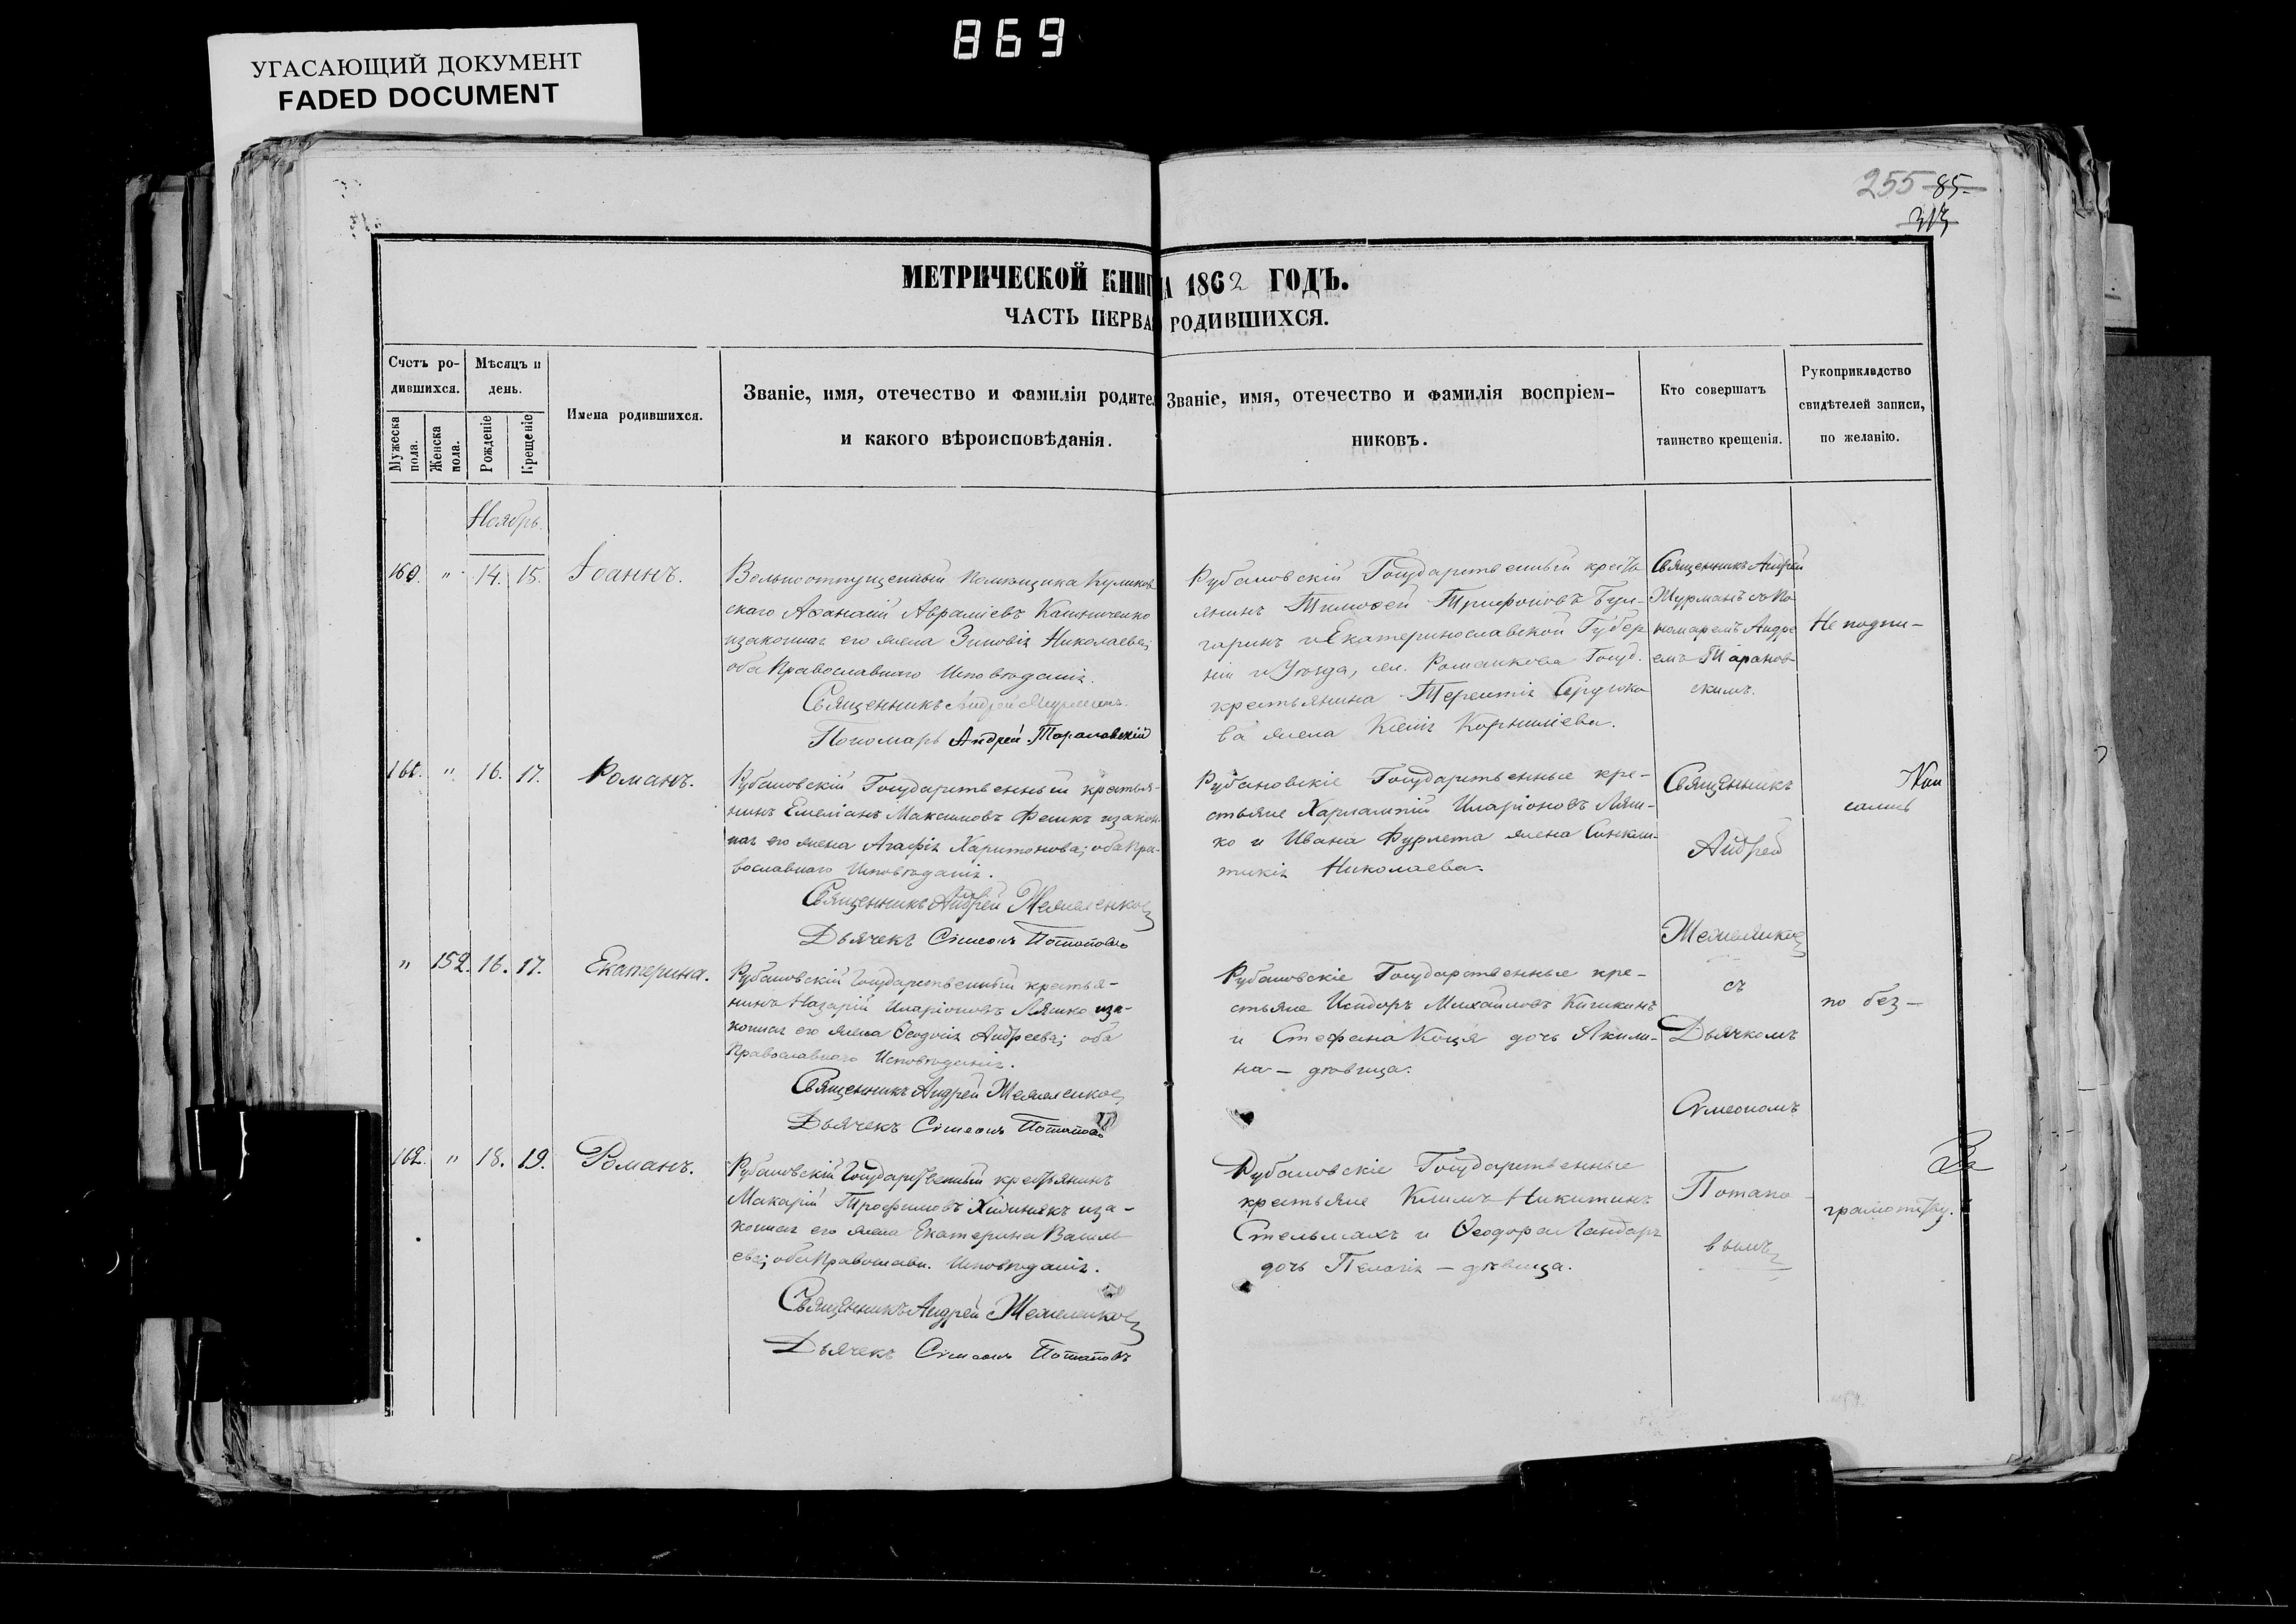 869
УГАСАЮЩИЙ ДОКУМЕНТ
FADED DOCUMENT
255 85
313
МЕТРИЧЕСКОЙ КНИГ А 1862 ГОДЪ.
ЧАСТЬ ПЕРВА РОДИВШИХСЯ.
Счетъ ро-
дившихся.
Мужеска
пола.
Женска
пола.
Мѣсяцъ и
день.
Рожденіе
Крещеніе
Имена родившихся.
Званіе, имя, отечество и фамилія родител
и какого вѣроисповѣданія.
Званіе, имя, отечество и фамилія воспріем-
никовъ.
Кто совершатъ
таинство крещенія.
Рукоприкладство
свидѣтелей записи,
по желанію.
Ноябрь.
160. " 14. 15. Іоаннъ.
Вольноотпущенный помѣщика Куликов
скаго Аѳанасій Авраміевъ Калиниченко
изаконная его жена Зиновія Николаева;
оба Православнаго Исповѣданія.
Священникъ Андрей Мурманъ.
Пономарь Андрей Тарановскій
Рубановскій Государственный кресть
янинъ Тимоѳей Трифоновъ Бул-
гаринъ и Екатеринославской Губер
ніи и Уѣзда, Романкова Госуд.
крестьянина Терентія
ва жена Ксенія Корниліева.
Священникъ Андрей
Мурманъ съ По
номаремъ Андре
емъ Таранов-
скимъ.
Не подпи-
161. " 16. 17. Романъ.
Рубановскій Государственный крестья-
нинъ Емеліанъ Максимовъ Феникъ изакон
ная его жена Агафія Харитонова; оба Пра-
вославнаго Исповѣданія.
Священникъ Андрей
Дьячекъ Сѵмеонъ Потаповъ
Рубановскіе Государственные кре-
стьяне Харлампій Иларіоновъ Ляш-
ко и Ивана Фурлета жена Синкли-
тикія Николаева.
Священникъ
Андрей
сались
" 152. 16. 17. Екатерина.
Рубановскій Государственный крестья-
нинъ Назарій Иларіоновъ Ляшко иза-
конная его жена Ѳеодосія Андреева; оба
Православнаго Исповѣданія.
Священникъ Андрей
Дьячекъ Сѵмеонъ Потаповъ
Рубановскіе Государственные кре-
стьяне Исидоръ Михайловъ Кичикинъ
и Стефана Коця дочь Акили-
на — дѣвица.
съ
Дьячкомъ
Сѵмеономъ
по без-
162. " 18. 19. Романъ.
Рубановскій Государственный крестьянинъ
Макарій Трофимовъ иза-
конная его жена Екатерина Василь
ева; оба Православн. Исповѣданія.
Священникъ Андрей
Дьячекъ Сѵмеонъ Потаповъ
Рубановскіе Государственные
крестьяне Климъ Никитинъ
Стельмахъ и Ѳеодора Гандаръ
дочь Пелагія — дѣвица.
Потапо-
вымъ
грамотству.